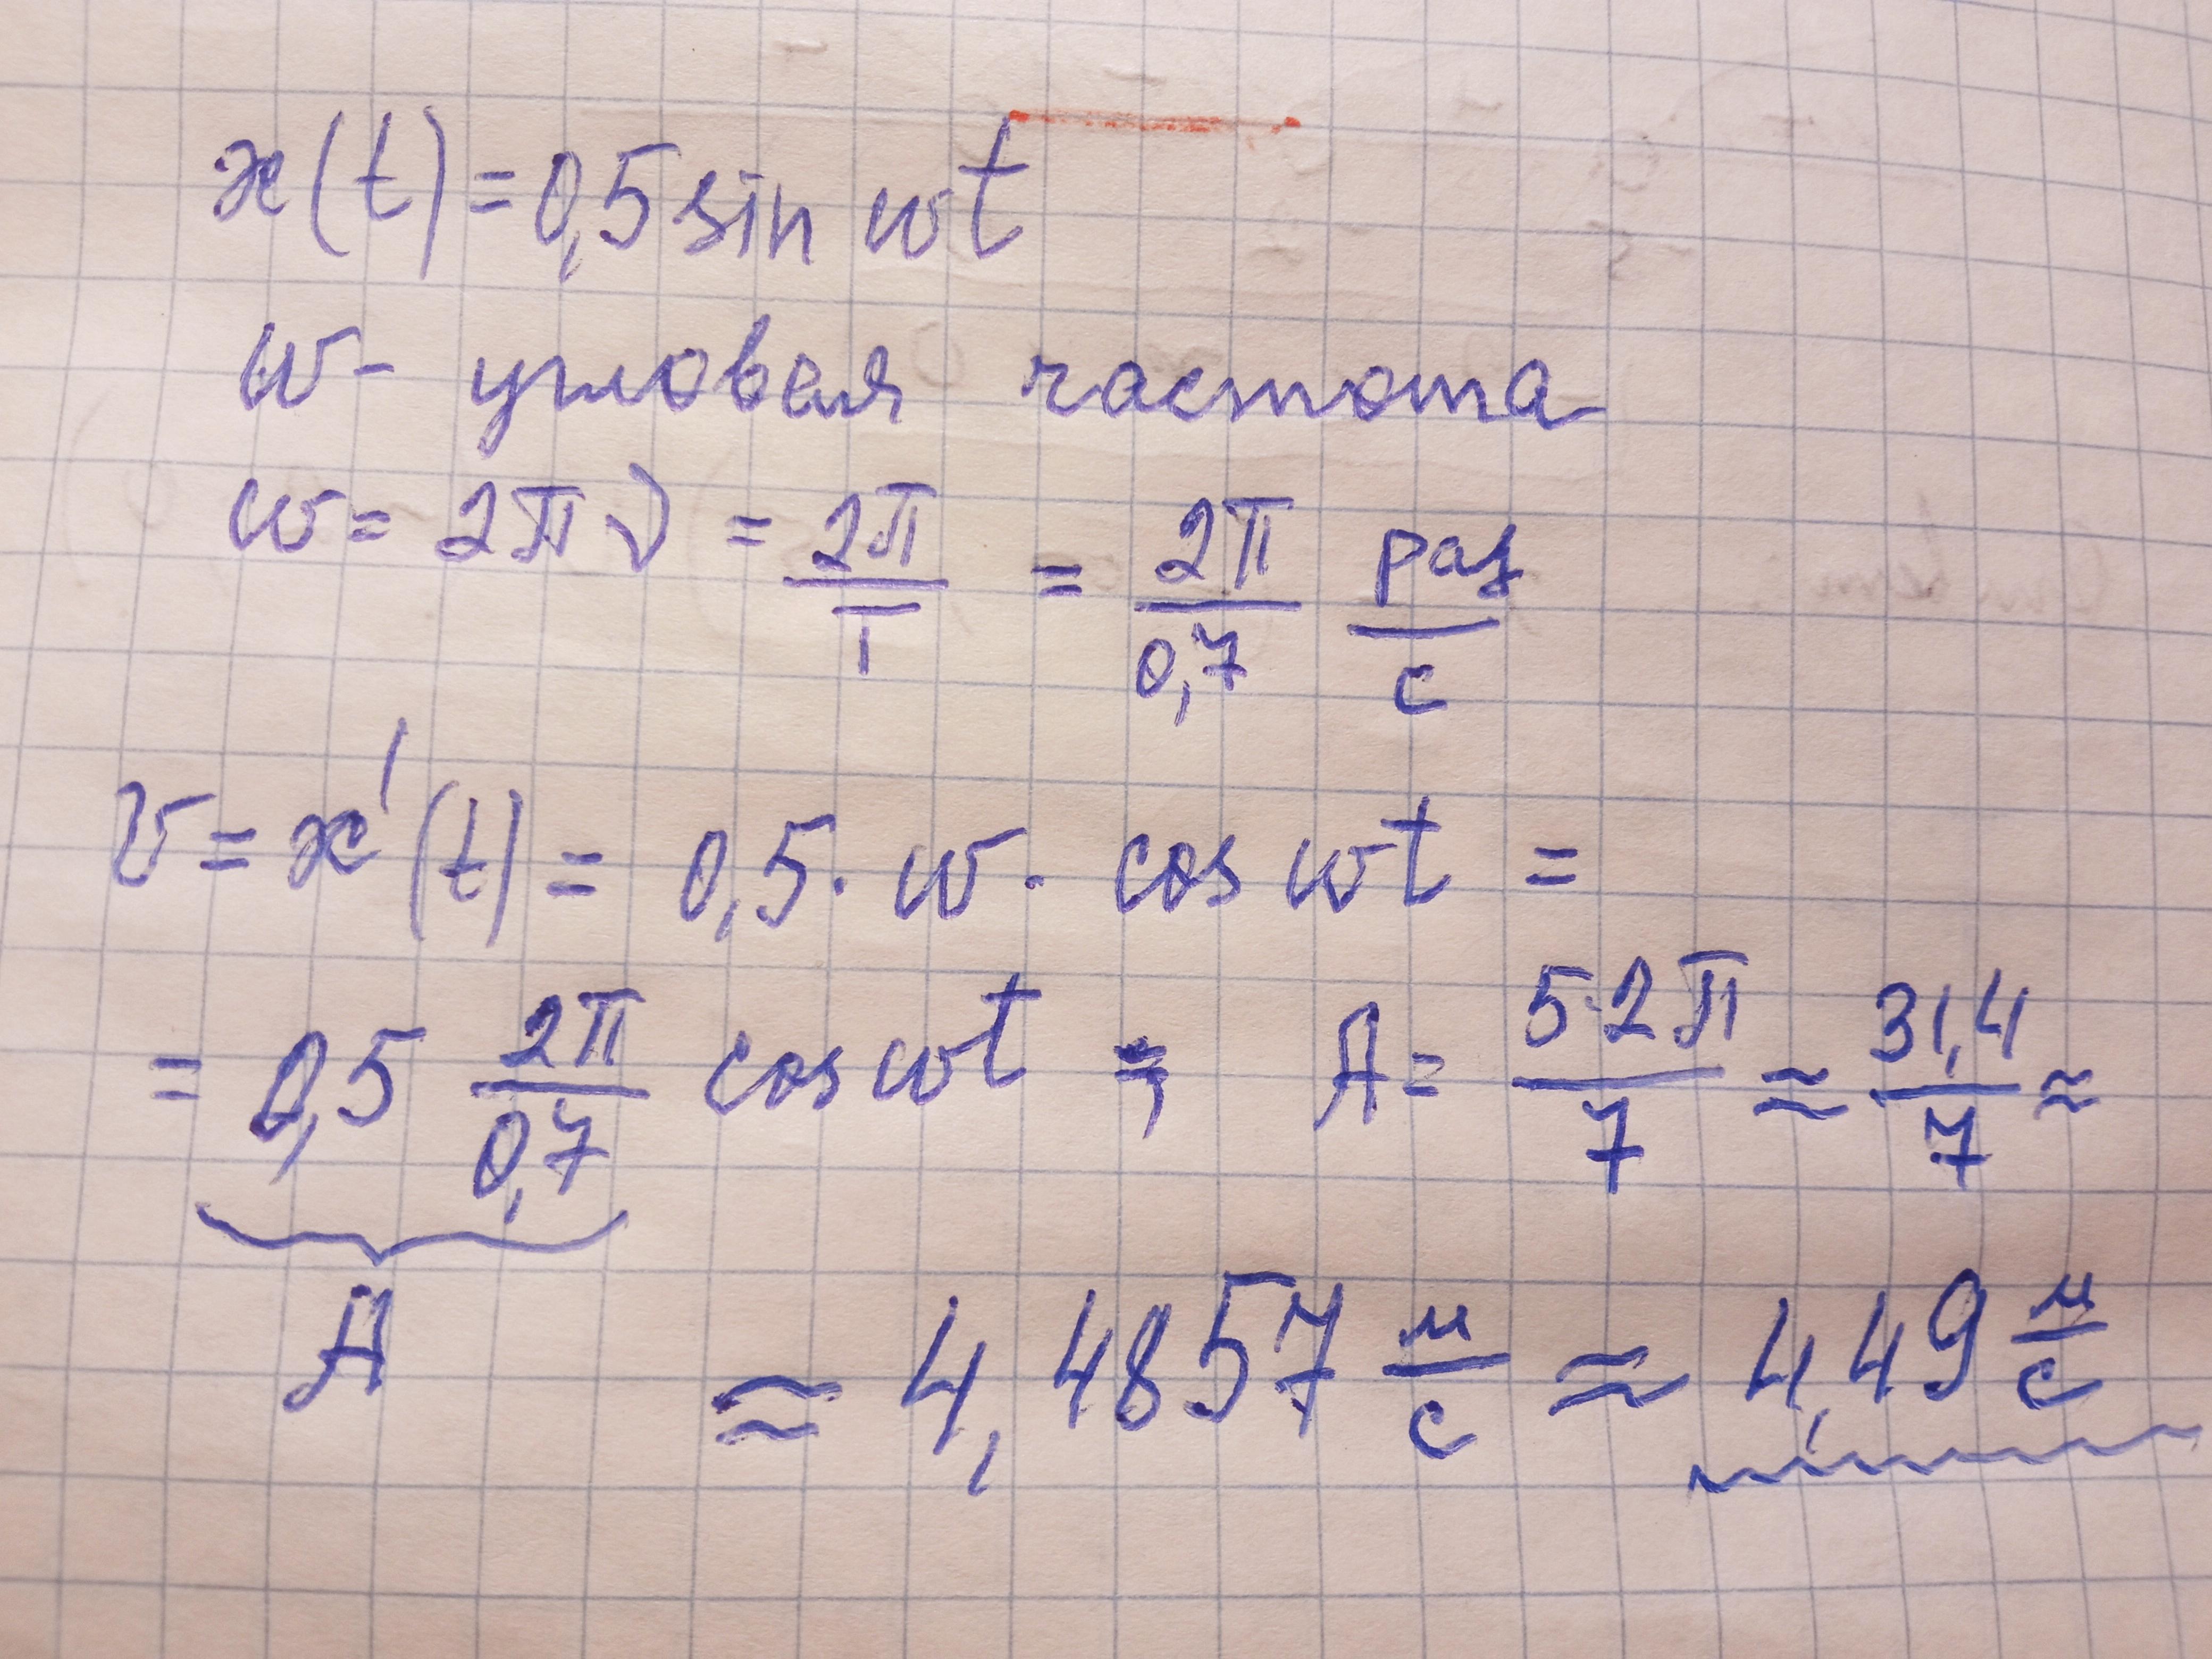 x(t) = 0,5 sin wt
w - угловая частота
w = 2π ν = 2π/T = 2π/0,7 рад/с
v = x'(t) = 0,5 · w · cos wt =
= 0,5 2π/0,7 cos wt ; A = 5·2π/7 ≈ 31,4/7 ≈
A
≈ 4,4857 м/с ≈ 4,49 м/с